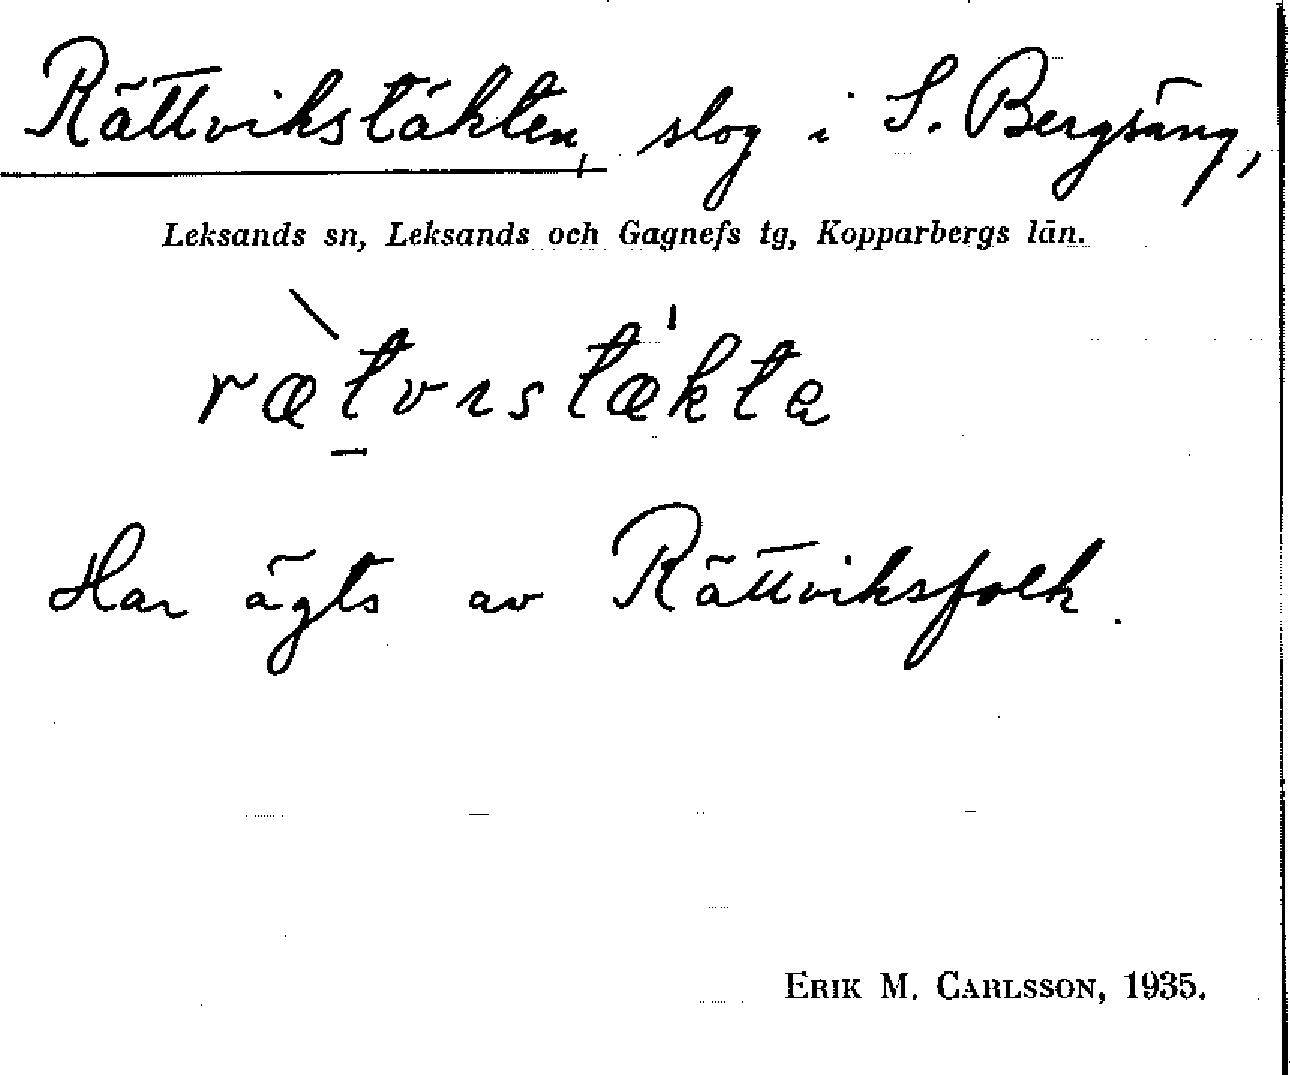 Rättvikstäkten, slog i S. Bergsäng,
Leksands sn, Leksands och Gagnefs tg, Kopparbergs län.
rætvıstækta
Har ägts av Rättviksfolk.
ERIK M. CARLSSON, 1935.